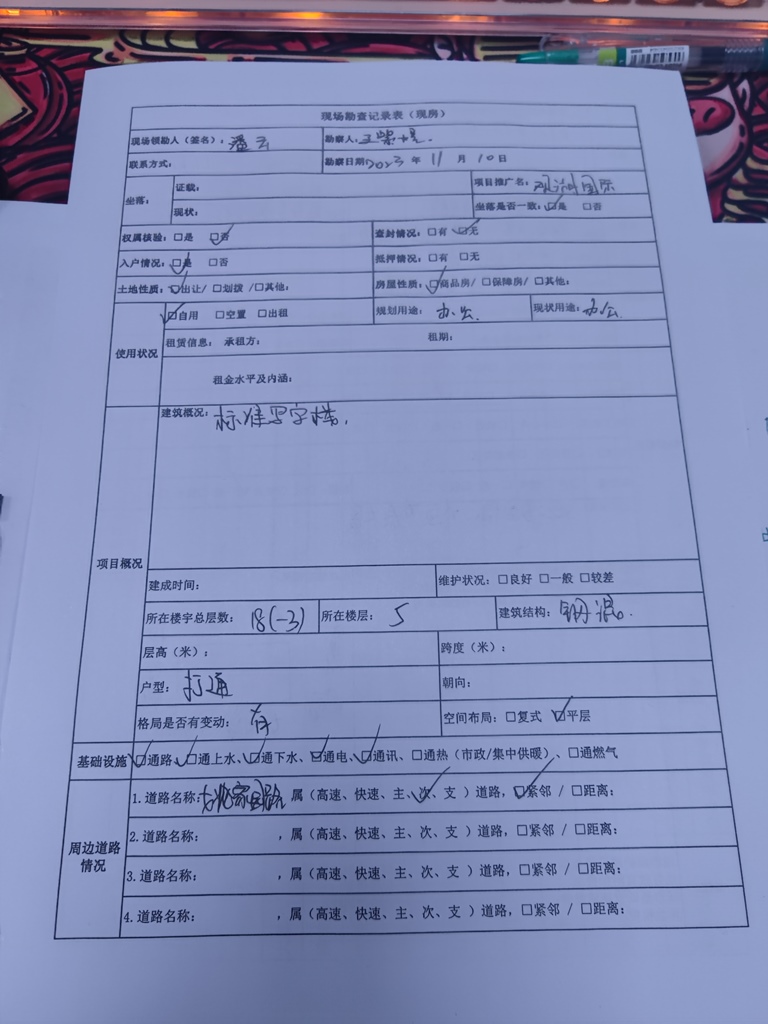 现场勘查记录表（现房）
现场领勘人（签名）：潘云 勘察人：王
联系方式： 勘察日期：2023 年 11 月 10 日
坐落： 证载： 项目推广名：国际
现状： 坐落是否一致：☑是 □否
权属核验：□是 ☑否 查封情况：□有 ☑无
入户情况：☑是 □否 抵押情况：□有 □无
土地性质：☑出让/ □划拨 /□其他： 房屋性质：☑商品房/ □保障房/ □其他：
使用状况 ☑自用 □空置 □出租 规划用途：办公. 现状用途：办公.
租赁信息： 承租方： 租期：
租金水平及内涵：
项目概况 建筑概况：标准写字楼.
建成时间： 维护状况：□良好 □一般 □较差
所在楼宇总层数：18(-3) 所在楼层：5 建筑结构：钢混.
层高（米）： 跨度（米）：
户型：打通 朝向：
格局是否有变动：有 空间布局：□复式 ☑平层
基础设施 ☑通路、☑通上水、☑通下水、☑通电、☑通讯、□通热（市政/集中供暖）、□通燃气
周边道路情况 1.道路名称： ，属（高速、快速、主、次、支 ）道路，☑紧邻 / □距离：
2.道路名称： ，属（高速、快速、主、次、支 ）道路，□紧邻 / □距离：
3.道路名称： ，属（高速、快速、主、次、支 ）道路，□紧邻 / □距离：
4.道路名称： ，属（高速、快速、主、次、支 ）道路，□紧邻 / □距离：